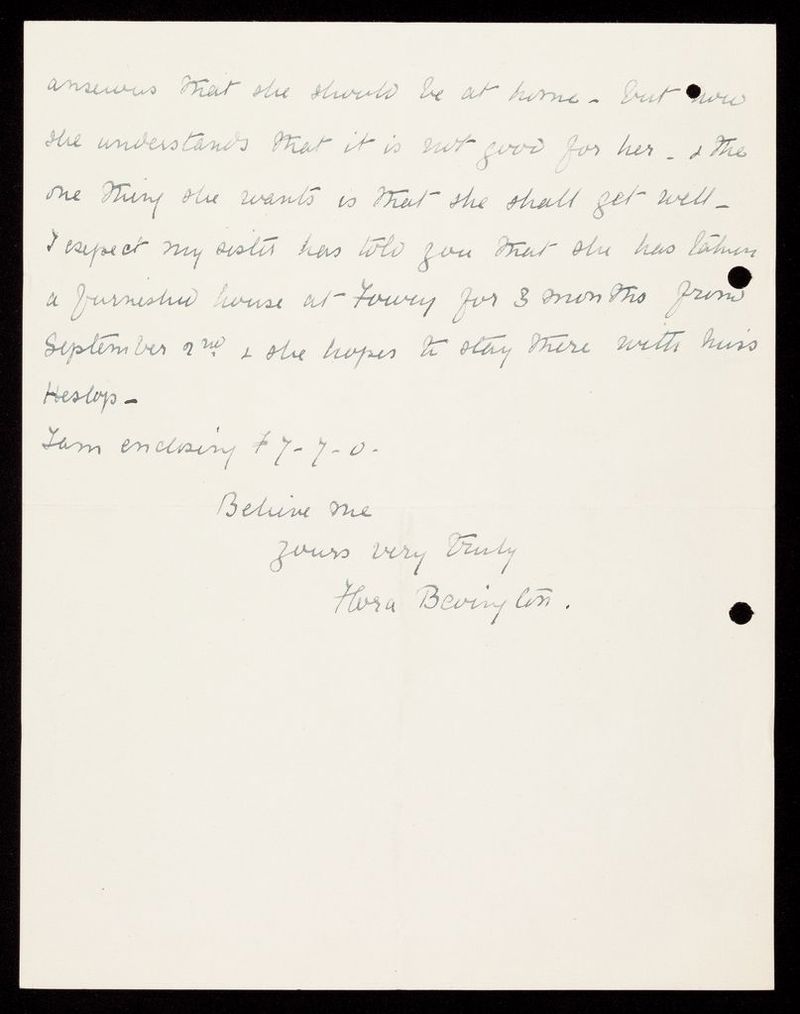 anxious that she should be at home - but now
she understands that it is not good for her - & the
one thing she wants is that she shall get well -
I expect my sister has told you that she has taken
a furnished house at Fowey for 3 months from
September 2nd & she hopes to stay there with Miss
Heslop -
I am enclosing £7-7-0-
Believe me
yours very truly
Flora Bevington.